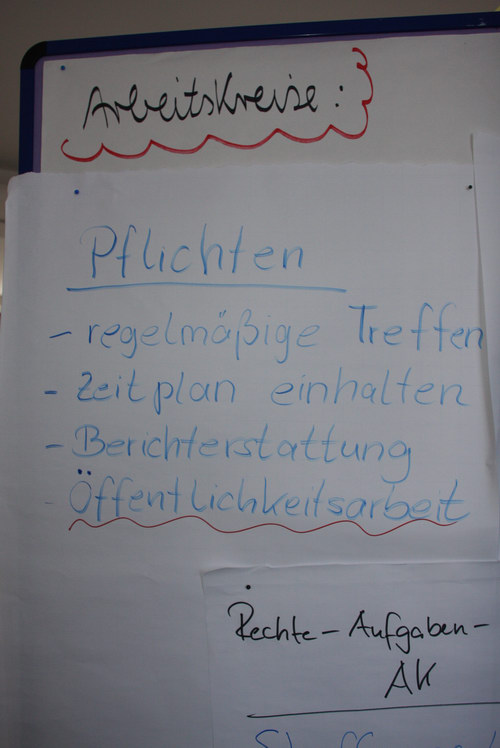 Arbeitskreise:
Pflichten
- regelmäßige Treffen
- Zeitplan einhalten
- Berichterstattung
- Öffentlichkeitsarbeit
Rechte - Aufgaben -
AK